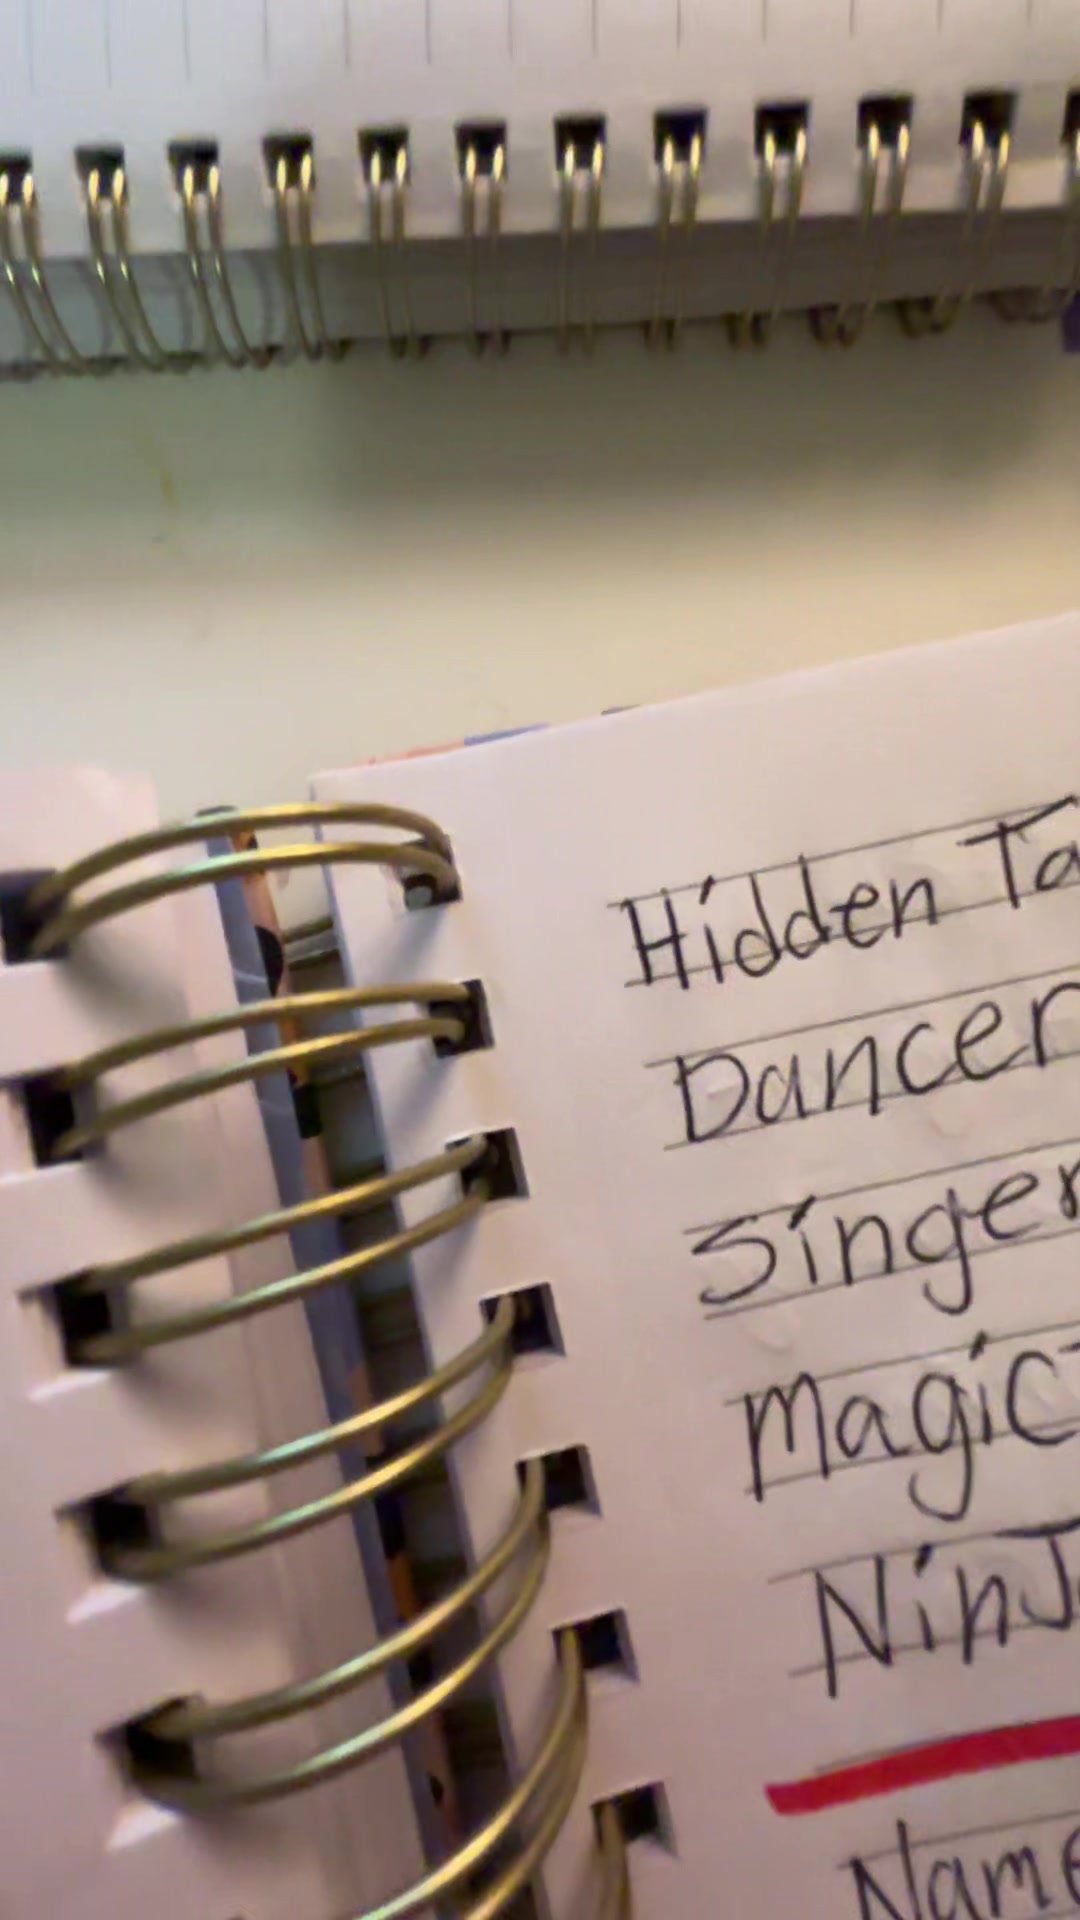 Hidden Ta
Dancer
Singer
Magic
Ninj
Name